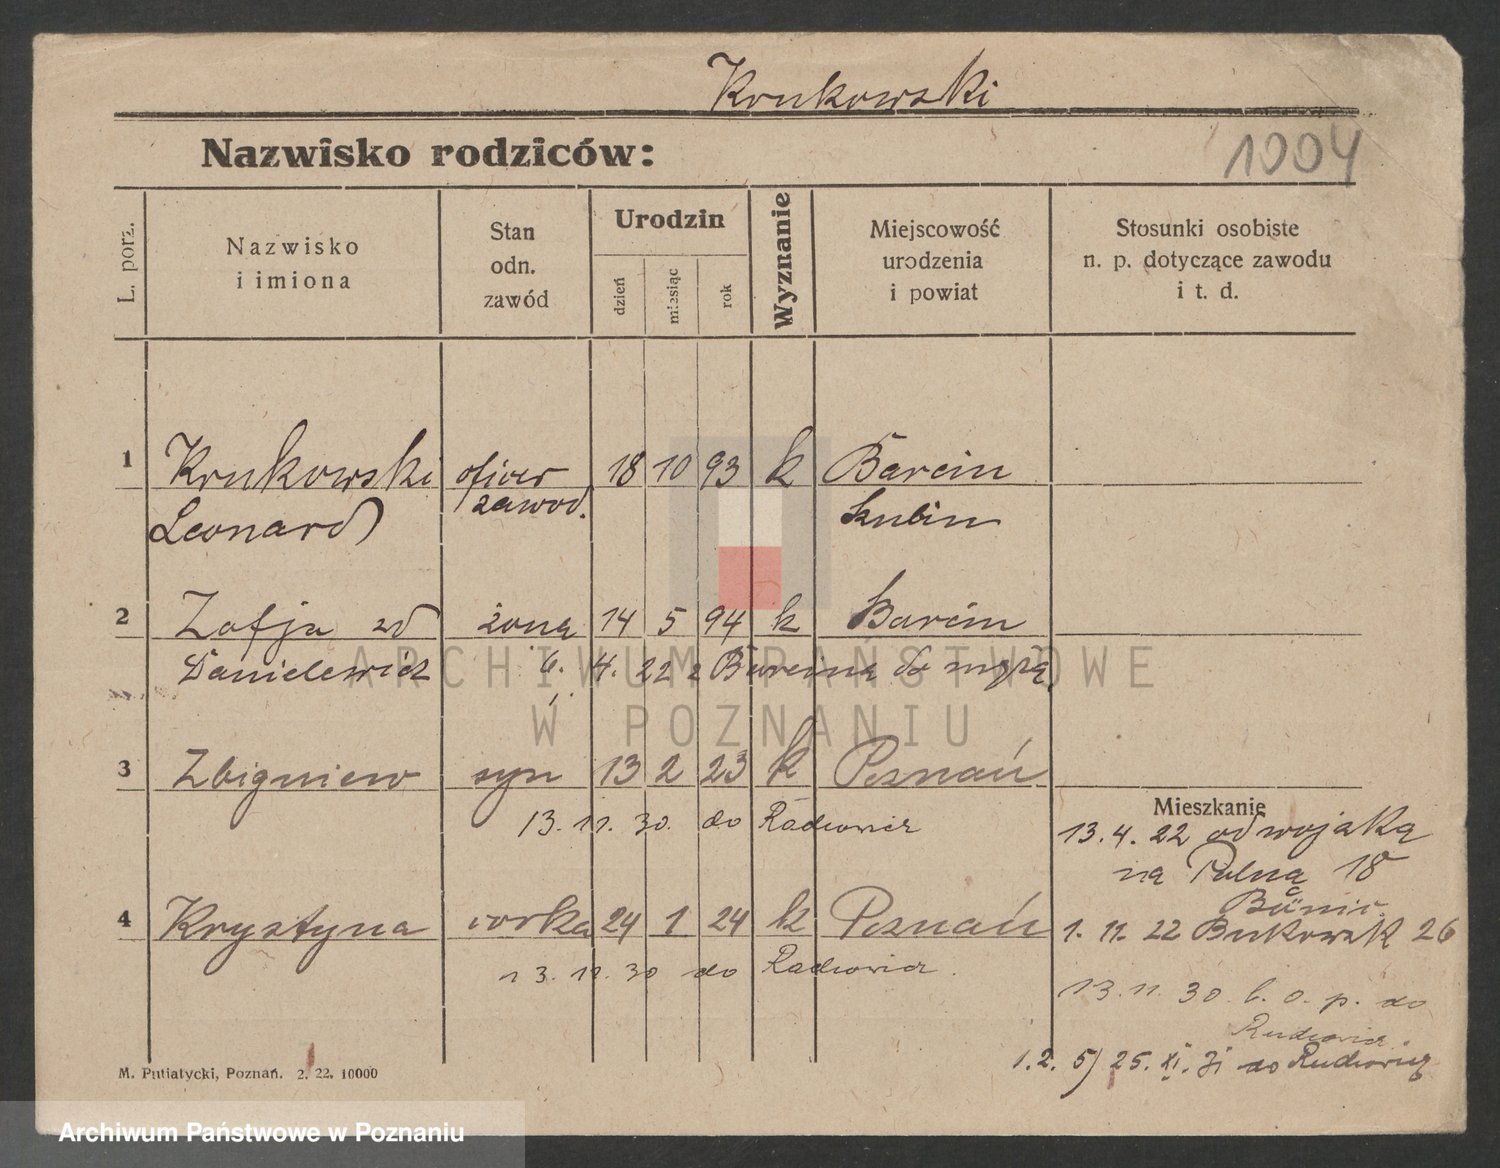 Krukowski
Nazwisko rodziców:
1004
L. porz.
Nazwisko
i imiona
Stan
odn.
zawód
Urodzin
dzień
miesiąc
rok
Wyznanie
Miejscowość
urodzenia
i powiat
Stosunki osobiste
n. p. dotyczące zawodu
i t. d.
1 Krukowski oficer 18 10 93 k Barcin
Leonard zawod. Szubin
2 Zofja zd żona 14 5 94 k Barcin
Danielewicz 6. 4. 22 z Barcina do męża
3 Zbigniew syn 13 2 23 k Poznań
13. 11. 30. do
Mieszkanie
13. 4. 22 od wojaka
na Polna 18
4 Krystyna corka 24 1 24 k Poznań
1. 11. 22 Bukowsk 26
13. 11. 30 do
13. 11. 30 b. o. p. do
1. 2. 5) 25. XI. 31 do
M. Putiatycki, Poznań. 2. 22. 10000
ARCHIWUM PAŃSTWOWE
W POZNANIU
Archiwum Państwowe w Poznaniu